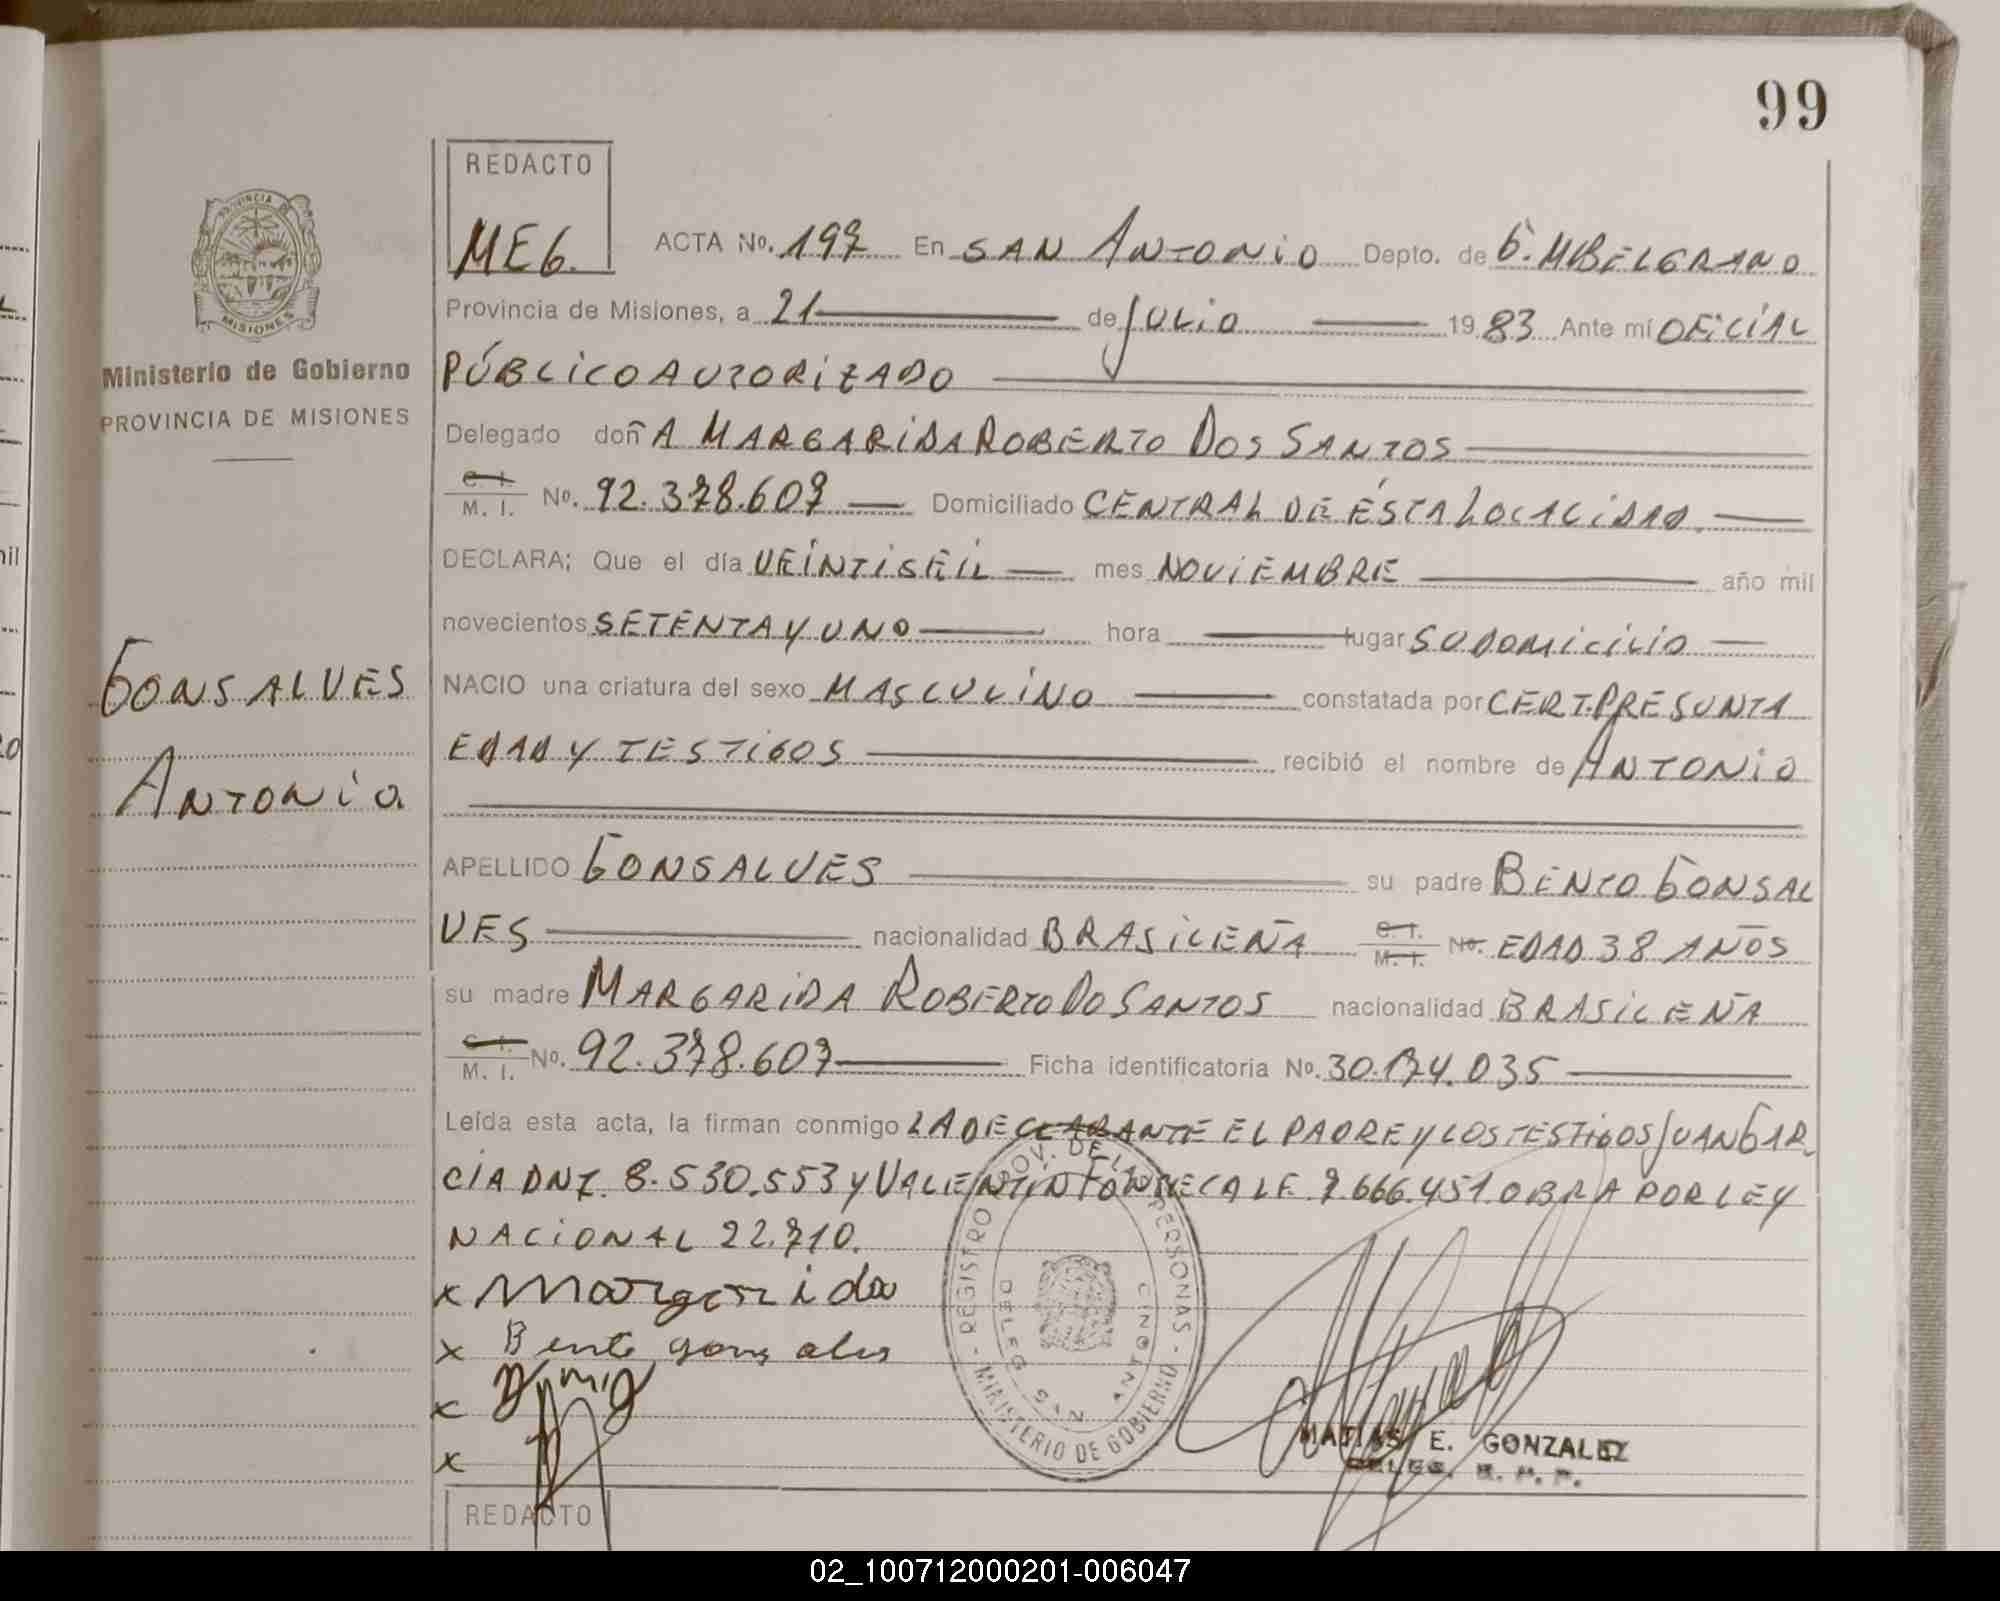 99
REDACTO
MEG.
ACTA No. 197 En SAN ANTONIO Depto. de G. M BELGRANO
Provincia de Misiones, a 21 de JULIO 1983 Ante mí OFICIAL
PÚBLICO AUTORIZADO
Delegado doñA MARGARIDA ROBERTO DOS SANTOS
C. I.
M. I. No. 92.378.607 Domiciliado CENTRAL DE ÉSTA LOCALIDAD.
DECLARA; Que el día VEINTISEIS mes NOVIEMBRE año mil
novecientos SETENTA Y UNO hora lugar SU DOMICILIO
NACIO una criatura del sexo MASCULINO constatada por CERT. PRESUNTA
EDAD Y TESTIGOS recibió el nombre de ANTONIO
APELLIDO GONSALVES su padre BENTO GONSAL
VES nacionalidad BRASILEÑA C. I. M. I. No. EDAD 38 AÑOS
su madre MARGARIDA ROBERTO DO SANTOS nacionalidad BRASILEÑA
C. I.
M. I. No. 92.378.607 Ficha identificatoria No. 30.174.035
Leída esta acta, la firman conmigo LA DECLARANTE EL PADRE Y LOS TESTIGOS JUAN GAR
CIA DNI. 8.530.553 Y VALENTIN FONSECA LE. 7.666.451 OBRA POR LEY
NACIONAL 22.710.
x Margarida
x Bento gonsalves
x
x
REGISTRO PROV. DE LAS PERSONAS - MINISTERIO DE GOBIERNO -
DELEG. SAN ANTONIO
MATIAS E. GONZALEZ
DELEG. R. P. P.
REDACTO
PROVINCIA DE
MISIONES
Ministerio de Gobierno
PROVINCIA DE MISIONES
GONSALVES
ANTONIO
02_100712000201-006047